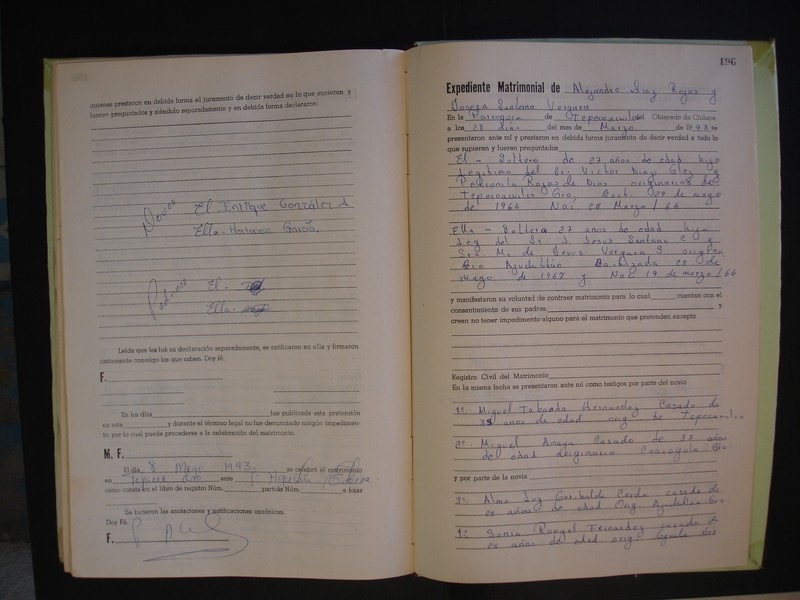 quienes prestaron en debida forma el juramento de decir verdad en lo que supieren y
fueren preguntados y siéndolo separadamente y en debida forma declararon:
El - Enrique González
Ella - García.
Padrinos
El -
Ella -
Leída que les fué su declaración separadamente, se ratificaron en ella y firmaron
juntamente conmigo los que saben. Doy fé.
F.
En los días fue publicada esta pretención
en esta y durante el término legal no fue denunciado ningún impedimen-
to por lo cual puede procederse a la celebración del matrimonio.
M. F.
El día 8 Mayo 1993 se celebró el matrimonio
en ante P.
como consta en el libro de registro Núm. partida Núm. a fojas
Se hicieron las anotaciones y notificaciones canónicas.
Doy Fé.
F.
196
Expediente Matrimonial de Alejandro Diaz Rojas y
Josefa Santana Vergara
En la Parroquia de del Obispado de Chilapa
a los 28 dias del mes de Marzo de 1993 se
presentaron ante mí y prestaron en debida forma juramento de decir verdad a todo lo
que supieren y fueren preguntados
El - Soltero de 27 años de edad hijo
Legitimo del Sr. Victor Diaz y
Petronila Rojas de Dios originarios de
Gro, Baut. 29 de mayo
de 1966 Nac 28 Marzo / 66
Ella - Soltera 27 años de edad hija
Leg del Sr. J. Jesus Santana C y
Sra. M. de Jesus Vergara
Bautizada 28 de
de 1967 y Nac 19 de marzo / 66
y manifestaron su voluntad de contraer matrimonio para lo cual cuentan con el
consentimiento de sus padres, y
creen no tener impedimento alguno para el matrimonio que pretenden excepto
Registro Civil del Matrimonio
En la misma fecha se presentaron ante mí como testigos por parte del novio
1º. Miguel Taboada Hernandez Casado de
años de edad orig. de
2º. Miguel Anaya Casado de 38 años
de edad originario Gro
y por parte de la novia
Alma Luz Garibaldi casada de
años de edad Orig. Gro
Sonia Rangel Fernandez casada de
años de edad orig. Iguala Gro